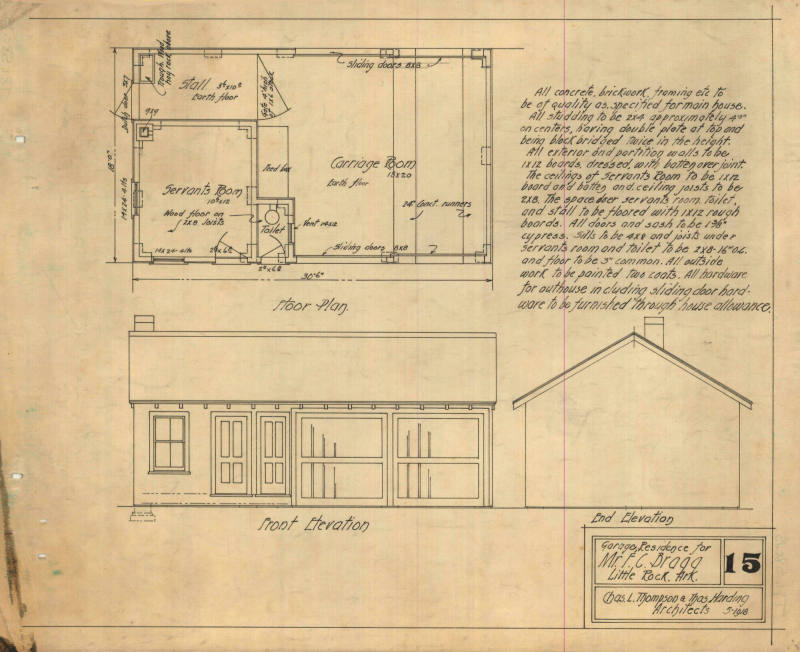 Trough, Feed
hay rack above
Stall 5⁶x10²
Earth floor
Gate 4' high
of 1x6 stock
Sliding doors 8x8
Dutch door 3x7
9x9
18'-0"
Feed box
Carriage Room
18x20
Earth floor
Servants Room
10⁰x12
14x24-4 lts
Wood floor on
2x8 Joists
Toilet
Vent 14x12
24" Conct. runners
14x24-4 lts
2⁸x6⁸
2⁶x6⁸
Sliding doors 8x8
30'-6"
Floor-Plan.
All concrete, brickwork, framing etc to
be of quality as specified for main house.
All studding to be 2x4 approximately 4'-0"
on centers, having double plate at top and
being block bridged twice in the height.
All exterior and partition walls to be
1x12 boards, dressed, with batten over joint.
The ceilings of Servants Room to be 1x12
board and batten, and ceiling joists to be
2x8. The space over servants room, toilet,
and stall to be floored with 1x12 rough
boards. All doors and sash to be 1⅜"
cypress. Sills to be 4x8 and joists under
servants room and toilet to be 2x8-16"o.c.
and floor to be 3" common. All outside
work to be painted two coats. All hardware
for outhouse including sliding door hard-
ware to be furnished through house allowance.
Front Elevation
End Elevation
Garage, Residence for
Mr. F. C. Bragg
Little Rock, Ark.
15
Chas. L. Thompson & Thos. Harding
Architects 5-1918